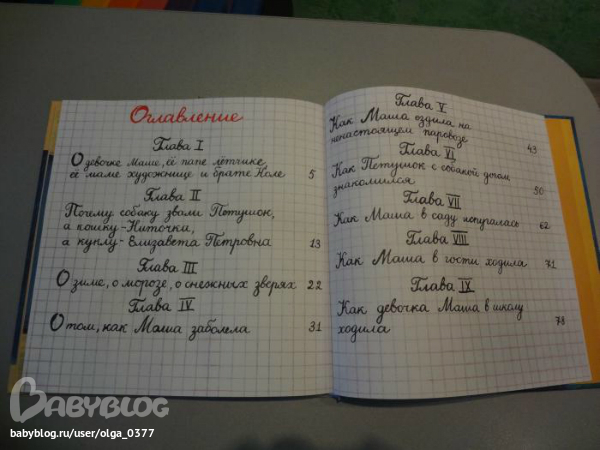 Оглавление
Глава I
О девочке Маше, её папе лётчике
её маме художнице и брате Коле 5
Глава II
Почему собаку звали Петушок,
а кошку - Ниточки,
а куклу - Елизавета Петровна 13
Глава III
О зиме, о морозе, о снежных зверях 22
Глава IV
О том, как Маша заболела 31
Глава V
Как Маша ездила на
ненастоящем паровозе 43
Глава VI
Как Петушок с собакой
знакомился 50
Глава VII
Как Маша в саду испугалась 62
Глава VIII
Как Маша в гости ходила 71
Глава IX
Как девочка Маша в школу
ходила 78
BABYBLOG
babyblog.ru/user/olga_0377